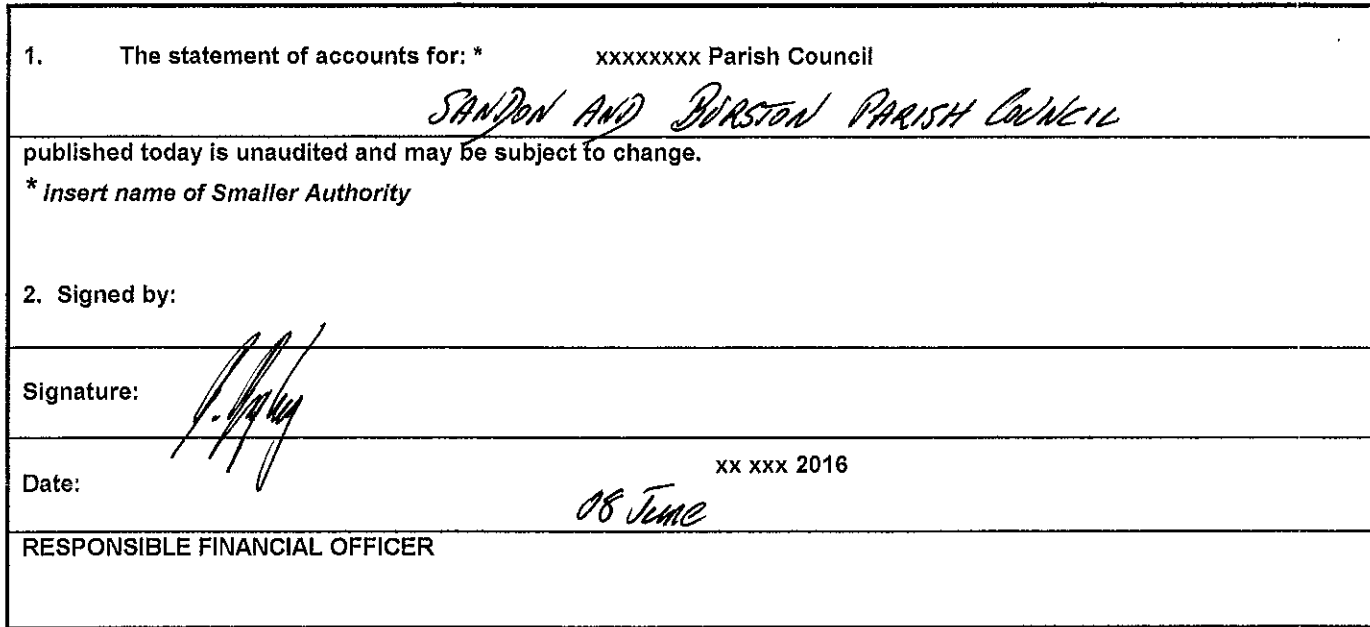 1. The statement of accounts for: * xxxxxxxx Parish Council
SANDON AND BURSTON PARISH COUNCIL
published today is unaudited and may be subject to change.
* Insert name of Smaller Authority
2. Signed by:
Signature:
xx xxx 2016
Date: 08 June
RESPONSIBLE FINANCIAL OFFICER